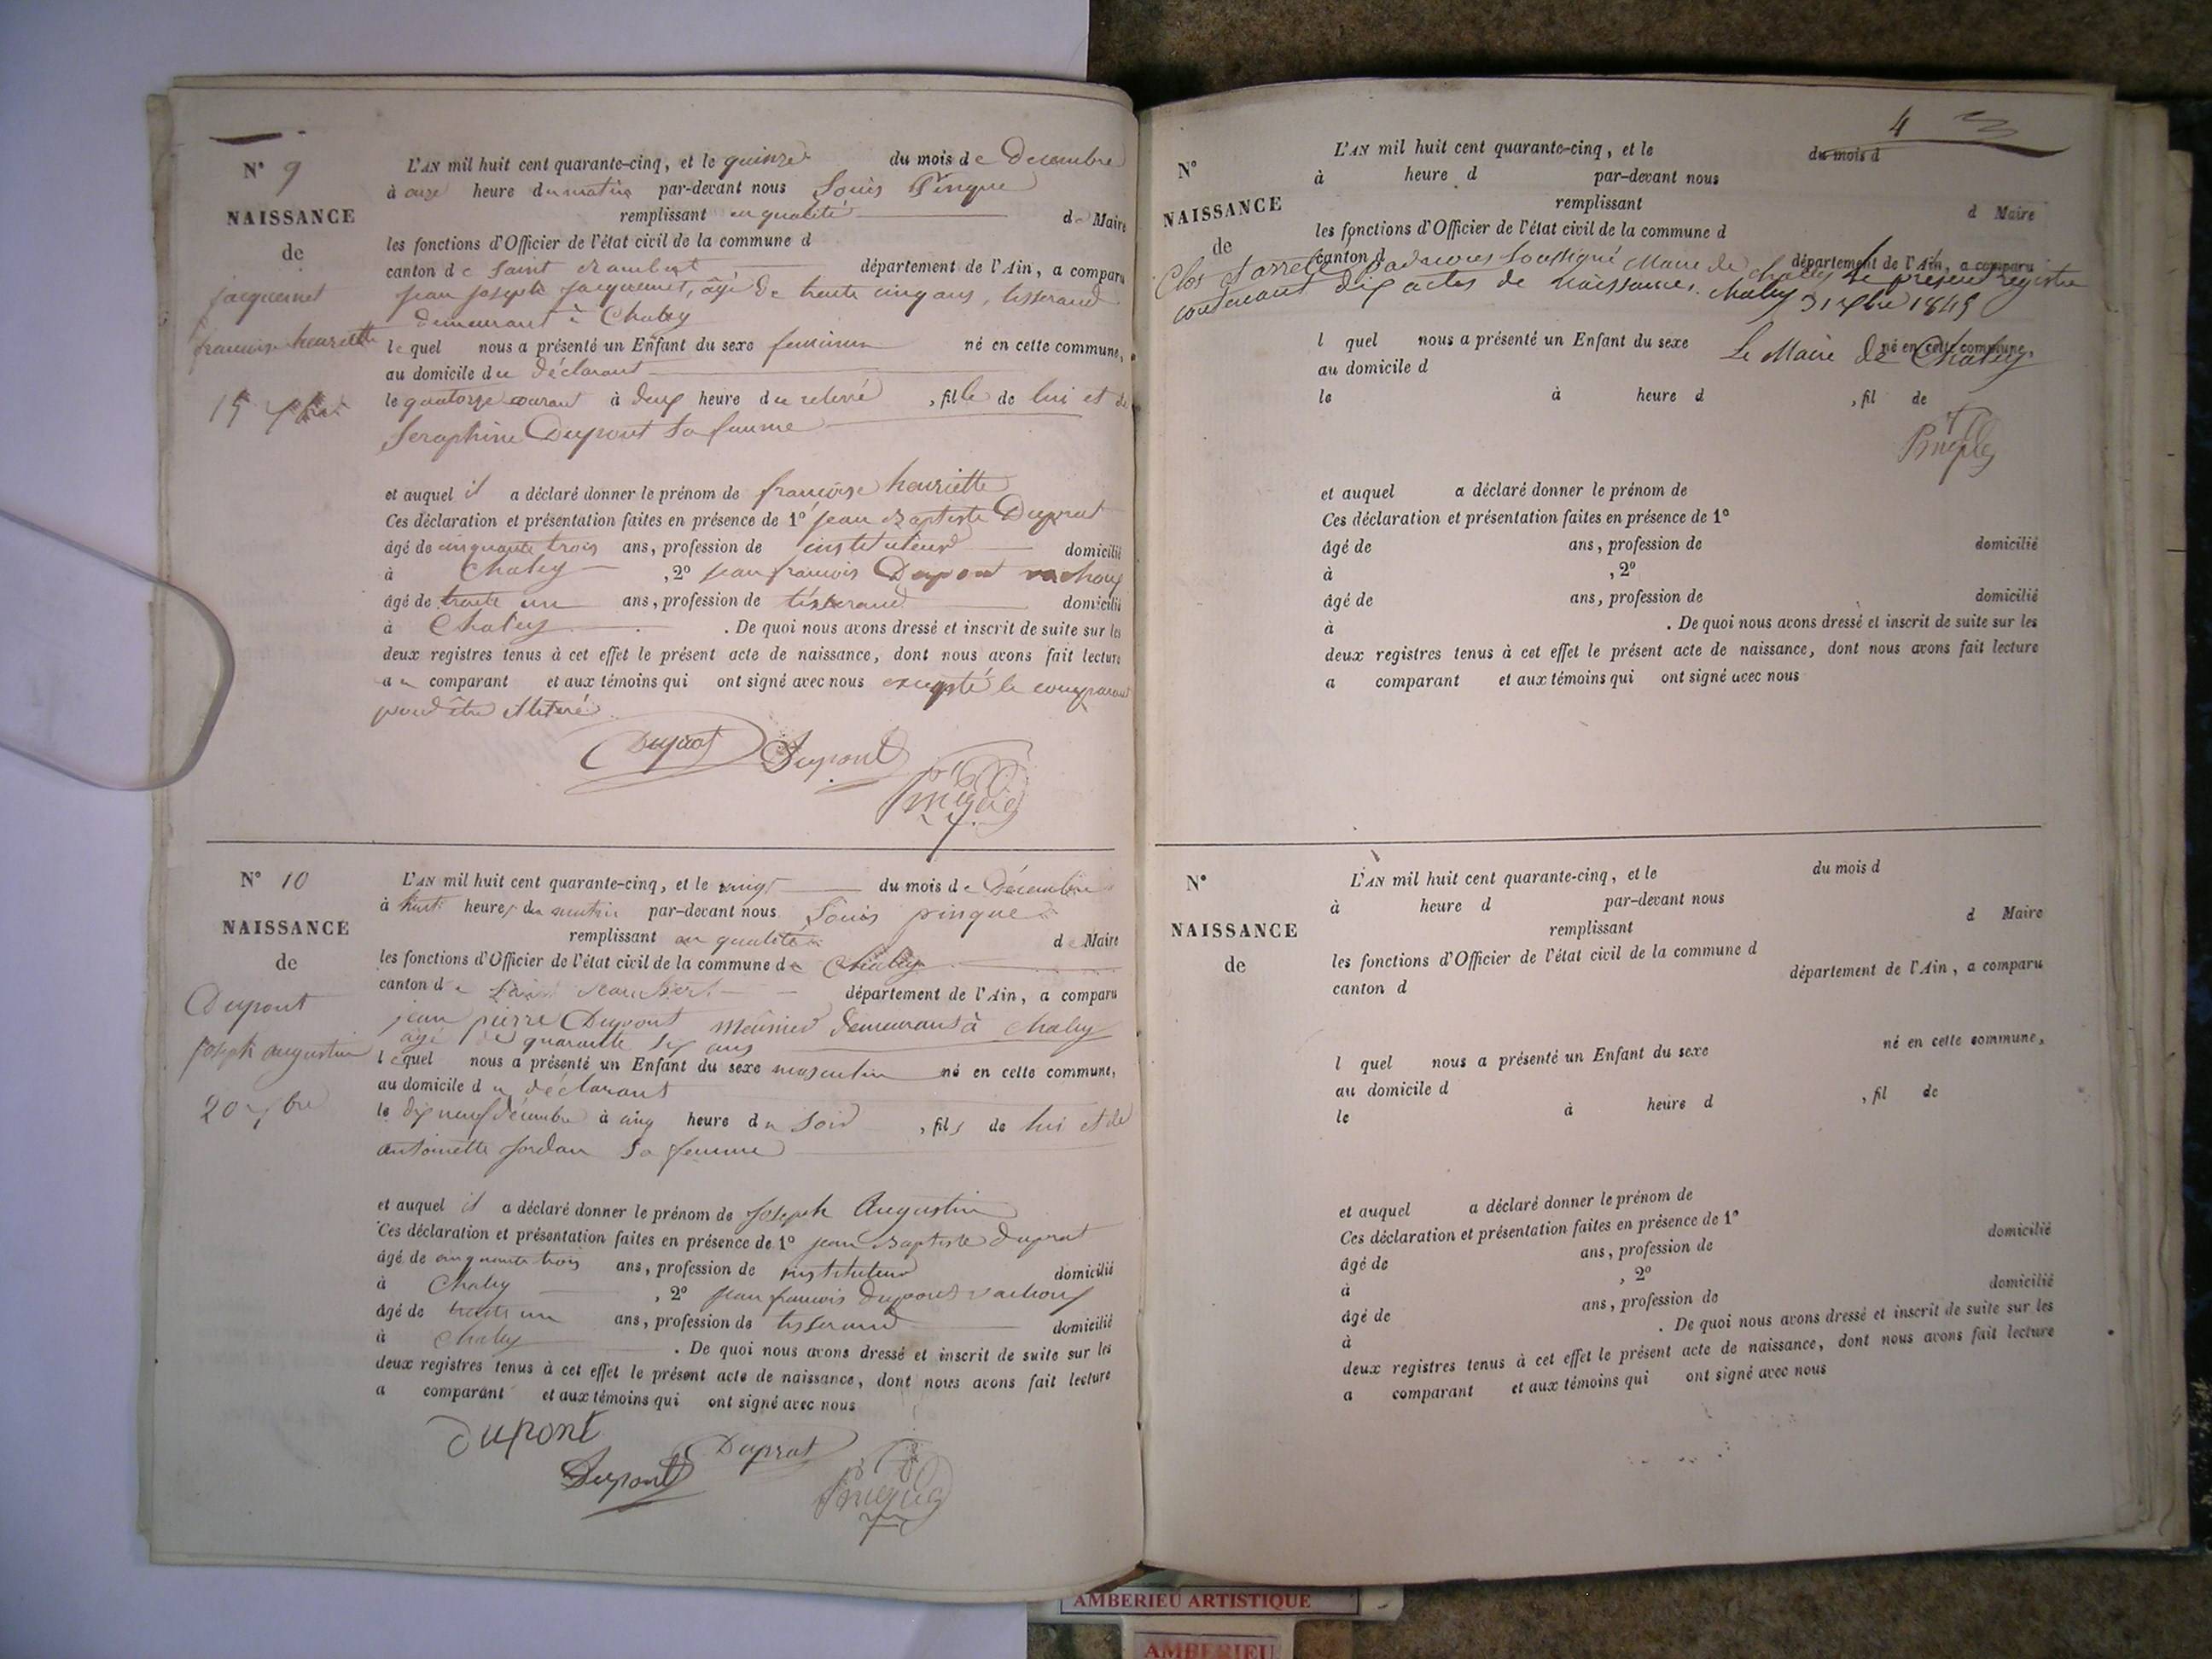 N° 9
NAISSANCE
de
jacquemet
francoise henriette
15 xbre
L'AN mil huit cent quarante-cinq, et le quinze du mois de Decembre
à onze heure du matin par-devant nous Louis Pingue
remplissant en qualité de Maire
les fonctions d'Officier de l'état civil de la commune d
canton de Saint Rambert département de l'Ain, a comparu
jean joseph jacquemet, âgé de trente cinq ans, tisserand
demeurant à Chaley
lequel nous a présenté un Enfant du sexe feminin né en cette commune,
au domicile du déclarant
le quatorze courant à deux heure du relevé, fille de lui et de
Seraphine Dupont sa femme
et auquel il a déclaré donner le prénom de francoise henriette
Ces déclaration et présentation faites en présence de 1° jean Baptiste Duprat
âgé de cinquante trois ans, profession de instituteur domicilié
à Chaley, 2° jean francois Dupont vachoux
âgé de trente un ans, profession de tisserand domicilié
à Chaley. De quoi nous avons dressé et inscrit de suite sur les
deux registres tenus à cet effet le présent acte de naissance, dont nous avons fait lecture
au comparant et aux témoins qui ont signé avec nous excepté le comparant
pour être illitéré
Duprat Dupont Pingue
N° 10
NAISSANCE
de
Dupont
joseph augustin
20 xbre
L'AN mil huit cent quarante-cinq, et le vingt du mois de Décembre
à huit heures du matin par-devant nous Louis pingue
remplissant en qualité de Maire
les fonctions d'Officier de l'état civil de la commune de Chaley
canton de Saint Rambert département de l'Ain, a comparu
jean pierre Dupont meunier demeurant à chaley
âgé de quarante six ans
lequel nous a présenté un Enfant du sexe masculin né en cette commune,
au domicile du déclarant
le dix neuf décembre à cinq heure du soir, fils de lui et de
antoinette jordan sa femme
et auquel il a déclaré donner le prénom de joseph Augustin
Ces déclaration et présentation faites en présence de 1° jean Baptiste duprat
âgé de cinquante trois ans, profession de instituteur domicilié
à Chaley, 2° jean francois dupont vachoux
âgé de trente un ans, profession de tisserand domicilié
à chaley. De quoi nous avons dressé et inscrit de suite sur les
deux registres tenus à cet effet le présent acte de naissance, dont nous avons fait lecture
a comparant et aux témoins qui ont signé avec nous
dupont
Dupont Duprat Pingue
4
N°
NAISSANCE
de
L'AN mil huit cent quarante-cinq, et le du mois d
à heure d par-devant nous
remplissant d Maire
les fonctions d'Officier de l'état civil de la commune d
canton d département de l'Ain, a comparu
Clos et arreté par nous soussigné Maire de chaley le présent registre
contenant dix actes de naissances. chaley 31 xbre 1845
l quel nous a présenté un Enfant du sexe né en cette commune,
Le Maire de Chaley
au domicile d
le à heure d, fil de
Pingue
et auquel a déclaré donner le prénom de
Ces déclaration et présentation faites en présence de 1°
âgé de ans, profession de domicilié
à, 2°
âgé de ans, profession de domicilié
à. De quoi nous avons dressé et inscrit de suite sur les
deux registres tenus à cet effet le présent acte de naissance, dont nous avons fait lecture
a comparant et aux témoins qui ont signé avec nous
N°
NAISSANCE
de
L'AN mil huit cent quarante-cinq, et le du mois d
à heure d par-devant nous
remplissant d Maire
les fonctions d'Officier de l'état civil de la commune d
canton d département de l'Ain, a comparu
l quel nous a présenté un Enfant du sexe né en cette commune,
au domicile d
le à heure d, fil de
et auquel a déclaré donner le prénom de
Ces déclaration et présentation faites en présence de 1°
âgé de ans, profession de domicilié
à, 2°
âgé de ans, profession de domicilié
à. De quoi nous avons dressé et inscrit de suite sur les
deux registres tenus à cet effet le présent acte de naissance, dont nous avons fait lecture
a comparant et aux témoins qui ont signé avec nous
AMBERIEU ARTISTIQUE
AMBERIEU